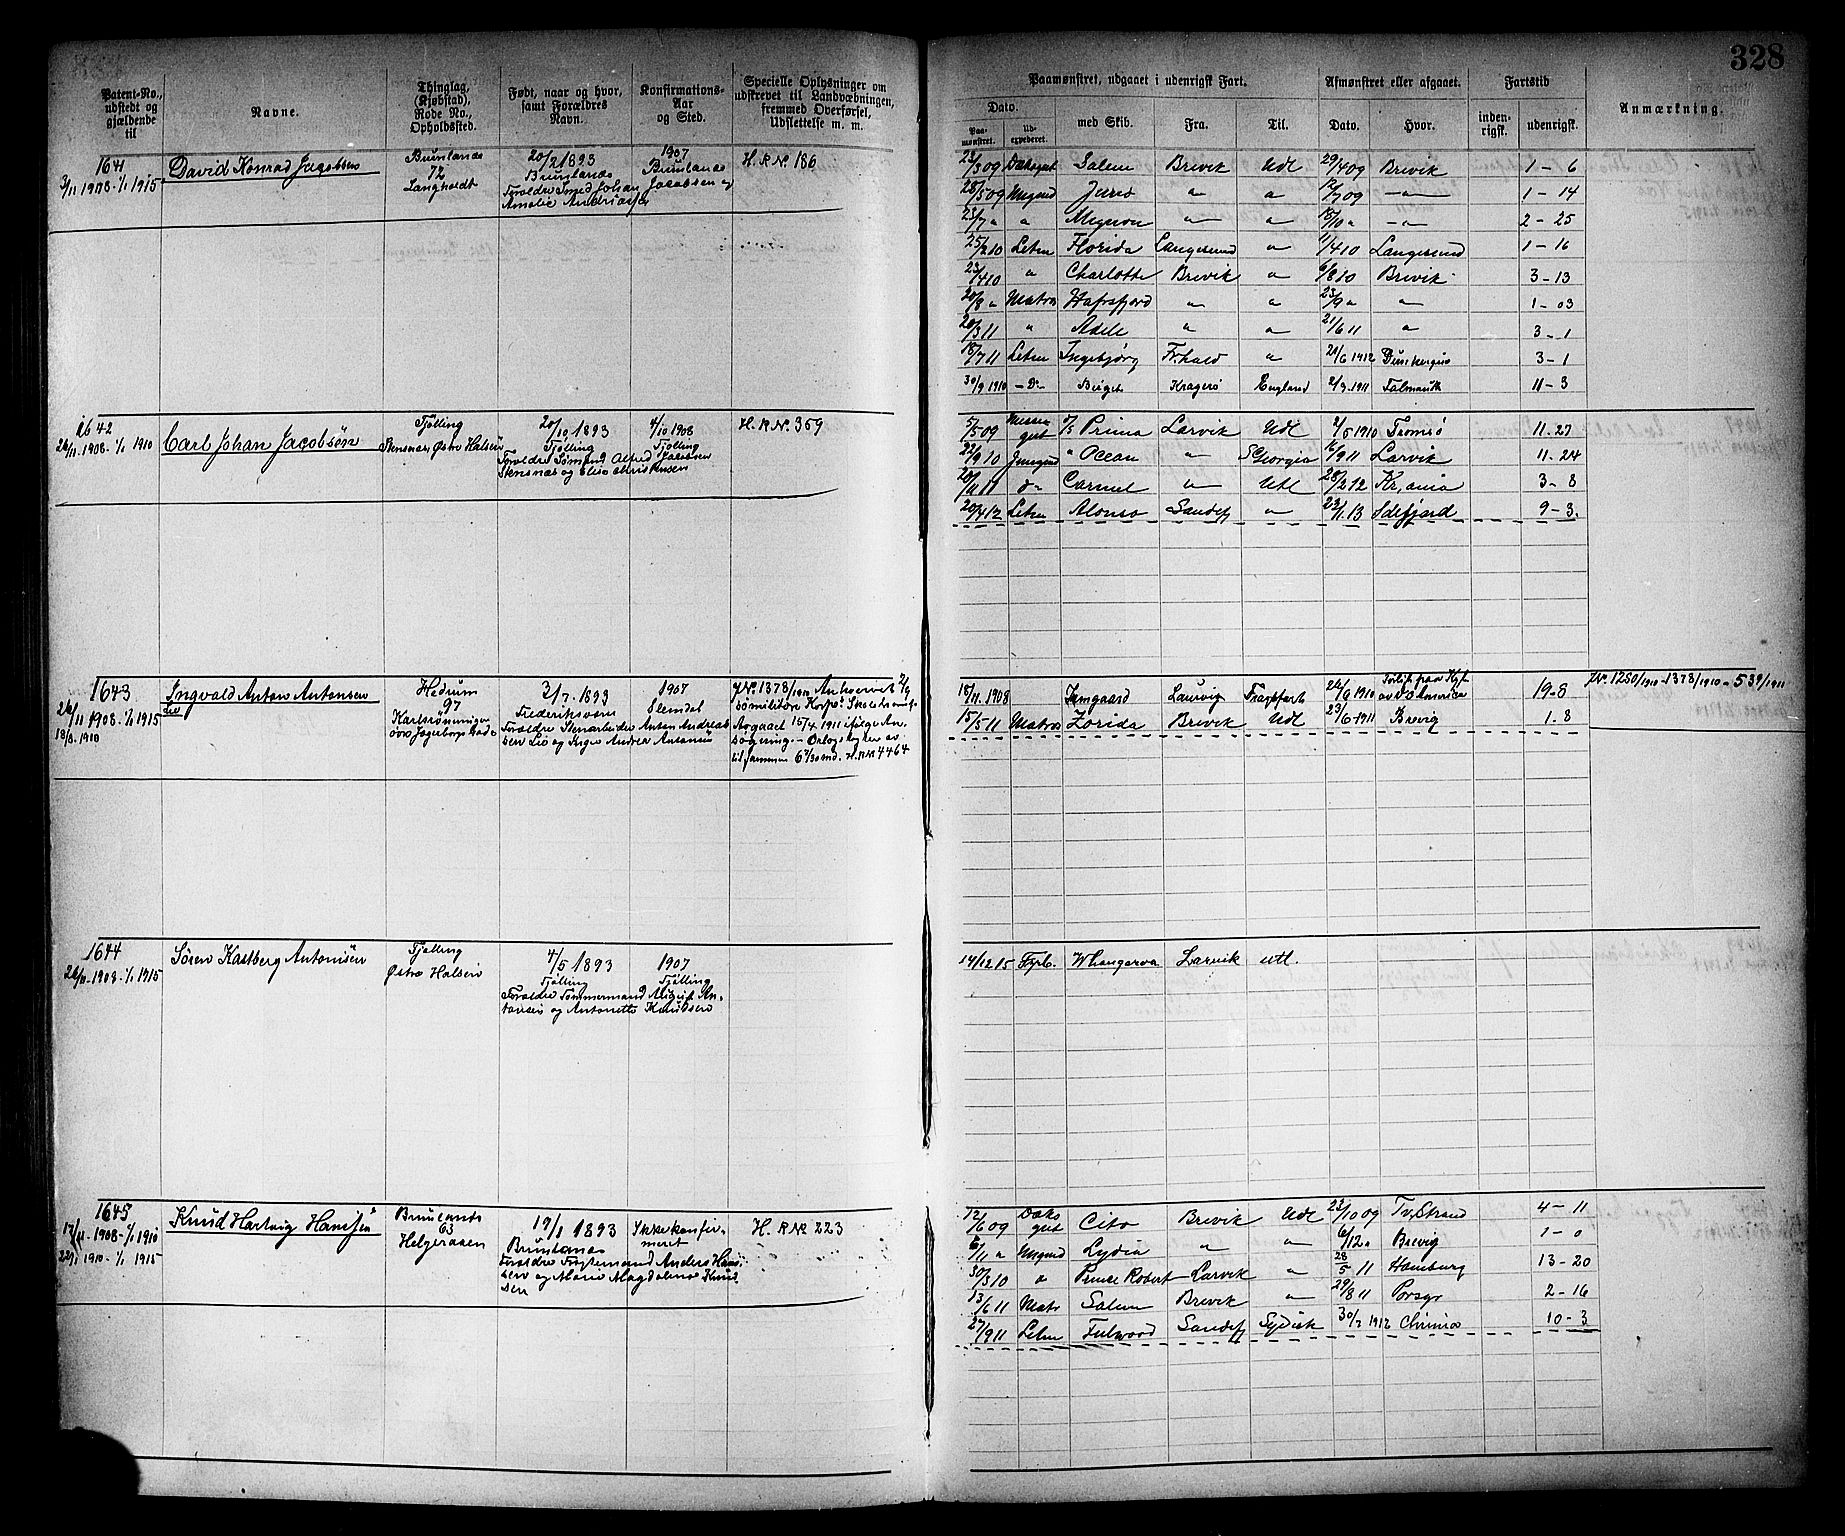 328
Patent-No., udstedt og gjældende til
Navne.
Thinglag, (Kjøbstad), Rode No., Opholdssted.
Født, naar og hvor, samt Forældres Navn.
Konfirmations-Aar og Sted.
Specielle Oplysninger om udskrevet til Landvæbningen, fremmed Overførsel, Udslettelse m. m.
Paamønstret, udgaaet i udenrigsk Fart.
Dato.
Paamønstret.
Udexpederet.
med Skib.
Fra.
Til.
Afmønstret eller afgaaet.
Dato.
Hvor.
Fartstid
indenrigsk.
udenrigsk.
Anmærkning.
1641
3/11 1908 - 1/1 1915
David Konrad Jacobsen
Brunlanes
72
Langholdt
20/2 1893
Brunlanes
Forældre Smed Johan Jacobsen og
Amalie Andriasen
1907
Brunlanes
H. R. Nº 186
Salem Brevik Udl 29/4 09 Brevik 1 - 6
28/5 09 Jungmd " " 12/7 09 -"- 1 - 14
" " " -"- 2 - 25
25/2 10 Letm Florida Langesund " 11/4 10 Langesund 1 - 16
23/4 10 " Charlotte Brevik " 6/8 10 Brevik 3 - 13
20/8 " Matros Hafrsfjord " " 23/9 " " 1 - 03
20/3 11 " Adele " " 21/6 11 " 3 - 1
18/7 11 Letm Ingebjørg Fr.hald " 3 - 1
30/9 1910 - D- Birget Kragerø England 2/3 - 1911 11 - 3
1642
26/11 1908 - 1/1 1910
Carl Johan Jacobsen
Tjølling
Stensnæs, Østre Halsen
20/10 1893
Tjølling
Forældre Sømand Alfred Jacobsen
Stensnæs og Elise Christensen
4/10 1908
Tjølling
H. R. Nº 359
5/5 09 Prima Larvik Udl 2/5 1910 Tromsø 11 - 27
22/9 10 Jungmd " Ocean " S Georgia 16/9 11 Larvik 11 - 24
20/11 11 Carmel " Utl 28/2 12 Kr,ania 3 - 8
20/4 12 Letm Alonso Sandefj " 23/1 13 Idefjord 9 - 3.
1643
26/11 1908 - 1/1 1915
18/8 - 1910
Ingvald Anton Antonsen
Lie
Hedrum
97
3/7 - 1893
Frederiksværn
Forældre Stenarbeider Anton Andreas-
sen Lie og Inger Andrea Antonsen
1907
Slemdal
J Nº 1378/1910 Ankvervet 2/9
Sømilitære Korps' Skoleskib
Afgaaet 15/4 1911 ifølge An-
søgning - Orlogstykter av
til sammen 6 2/30 md. H. R. Nº 4464
18/11 - 1908 Jomgaard Laurvig 26/9 1910 19 - 8
15/5 11 Matros Zorida Brevik Udl 23/6 - 1911 Brevig 1 - 8
JNº 1250/1910 - 1378/1910 - 539/1911
1644
26/11 - 1908 - 1/1 1915
Søren Kastberg Antonsen
Tjølling
Østre Halsen
4/5 1893
Tjølling
Forældre Tømmermand August An-
tonsen og Antonette Knudsen
1907
Tjølling
14/12 15 Fyrb. Whangarva Larvik utl.
1645
17/11 - 1908 - 1/1 1910
22/1 1910 - 1/1 1915
Knud Hartvig Hansen
Brunlanes
63
Helgeraaen
17/1 1893
Brunlanes
Forældre Anders Han-
sen og Marie Magdalene Knud-
sen
Ikke konfir-
meret
H. R. Nº 223
12/6 09 Dæks gut Cito Brevik Udl 23/10 09 Tv.strand 4 - 11
6/11 " Jungmd Lydia " " 6/12 " Brevig 1 - 0
30/3 10 " Prince Robert Larvik " 28/5 11 Hamburg 13 - 20
13/6 11 Matr Salem Brevik " 29/8 11 Porsgr 2 - 16
27/9 11 Letm Fulwood Sandefj Sydisk 30/7 1912 10 - 3